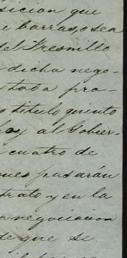 sicion que
barragosea
del Fresnillo
dicha nego-
taba pro-
titulo quinto
hoy al Gobier-
cuatro de
ues pasarán
trato y en la
negociacion
de que se